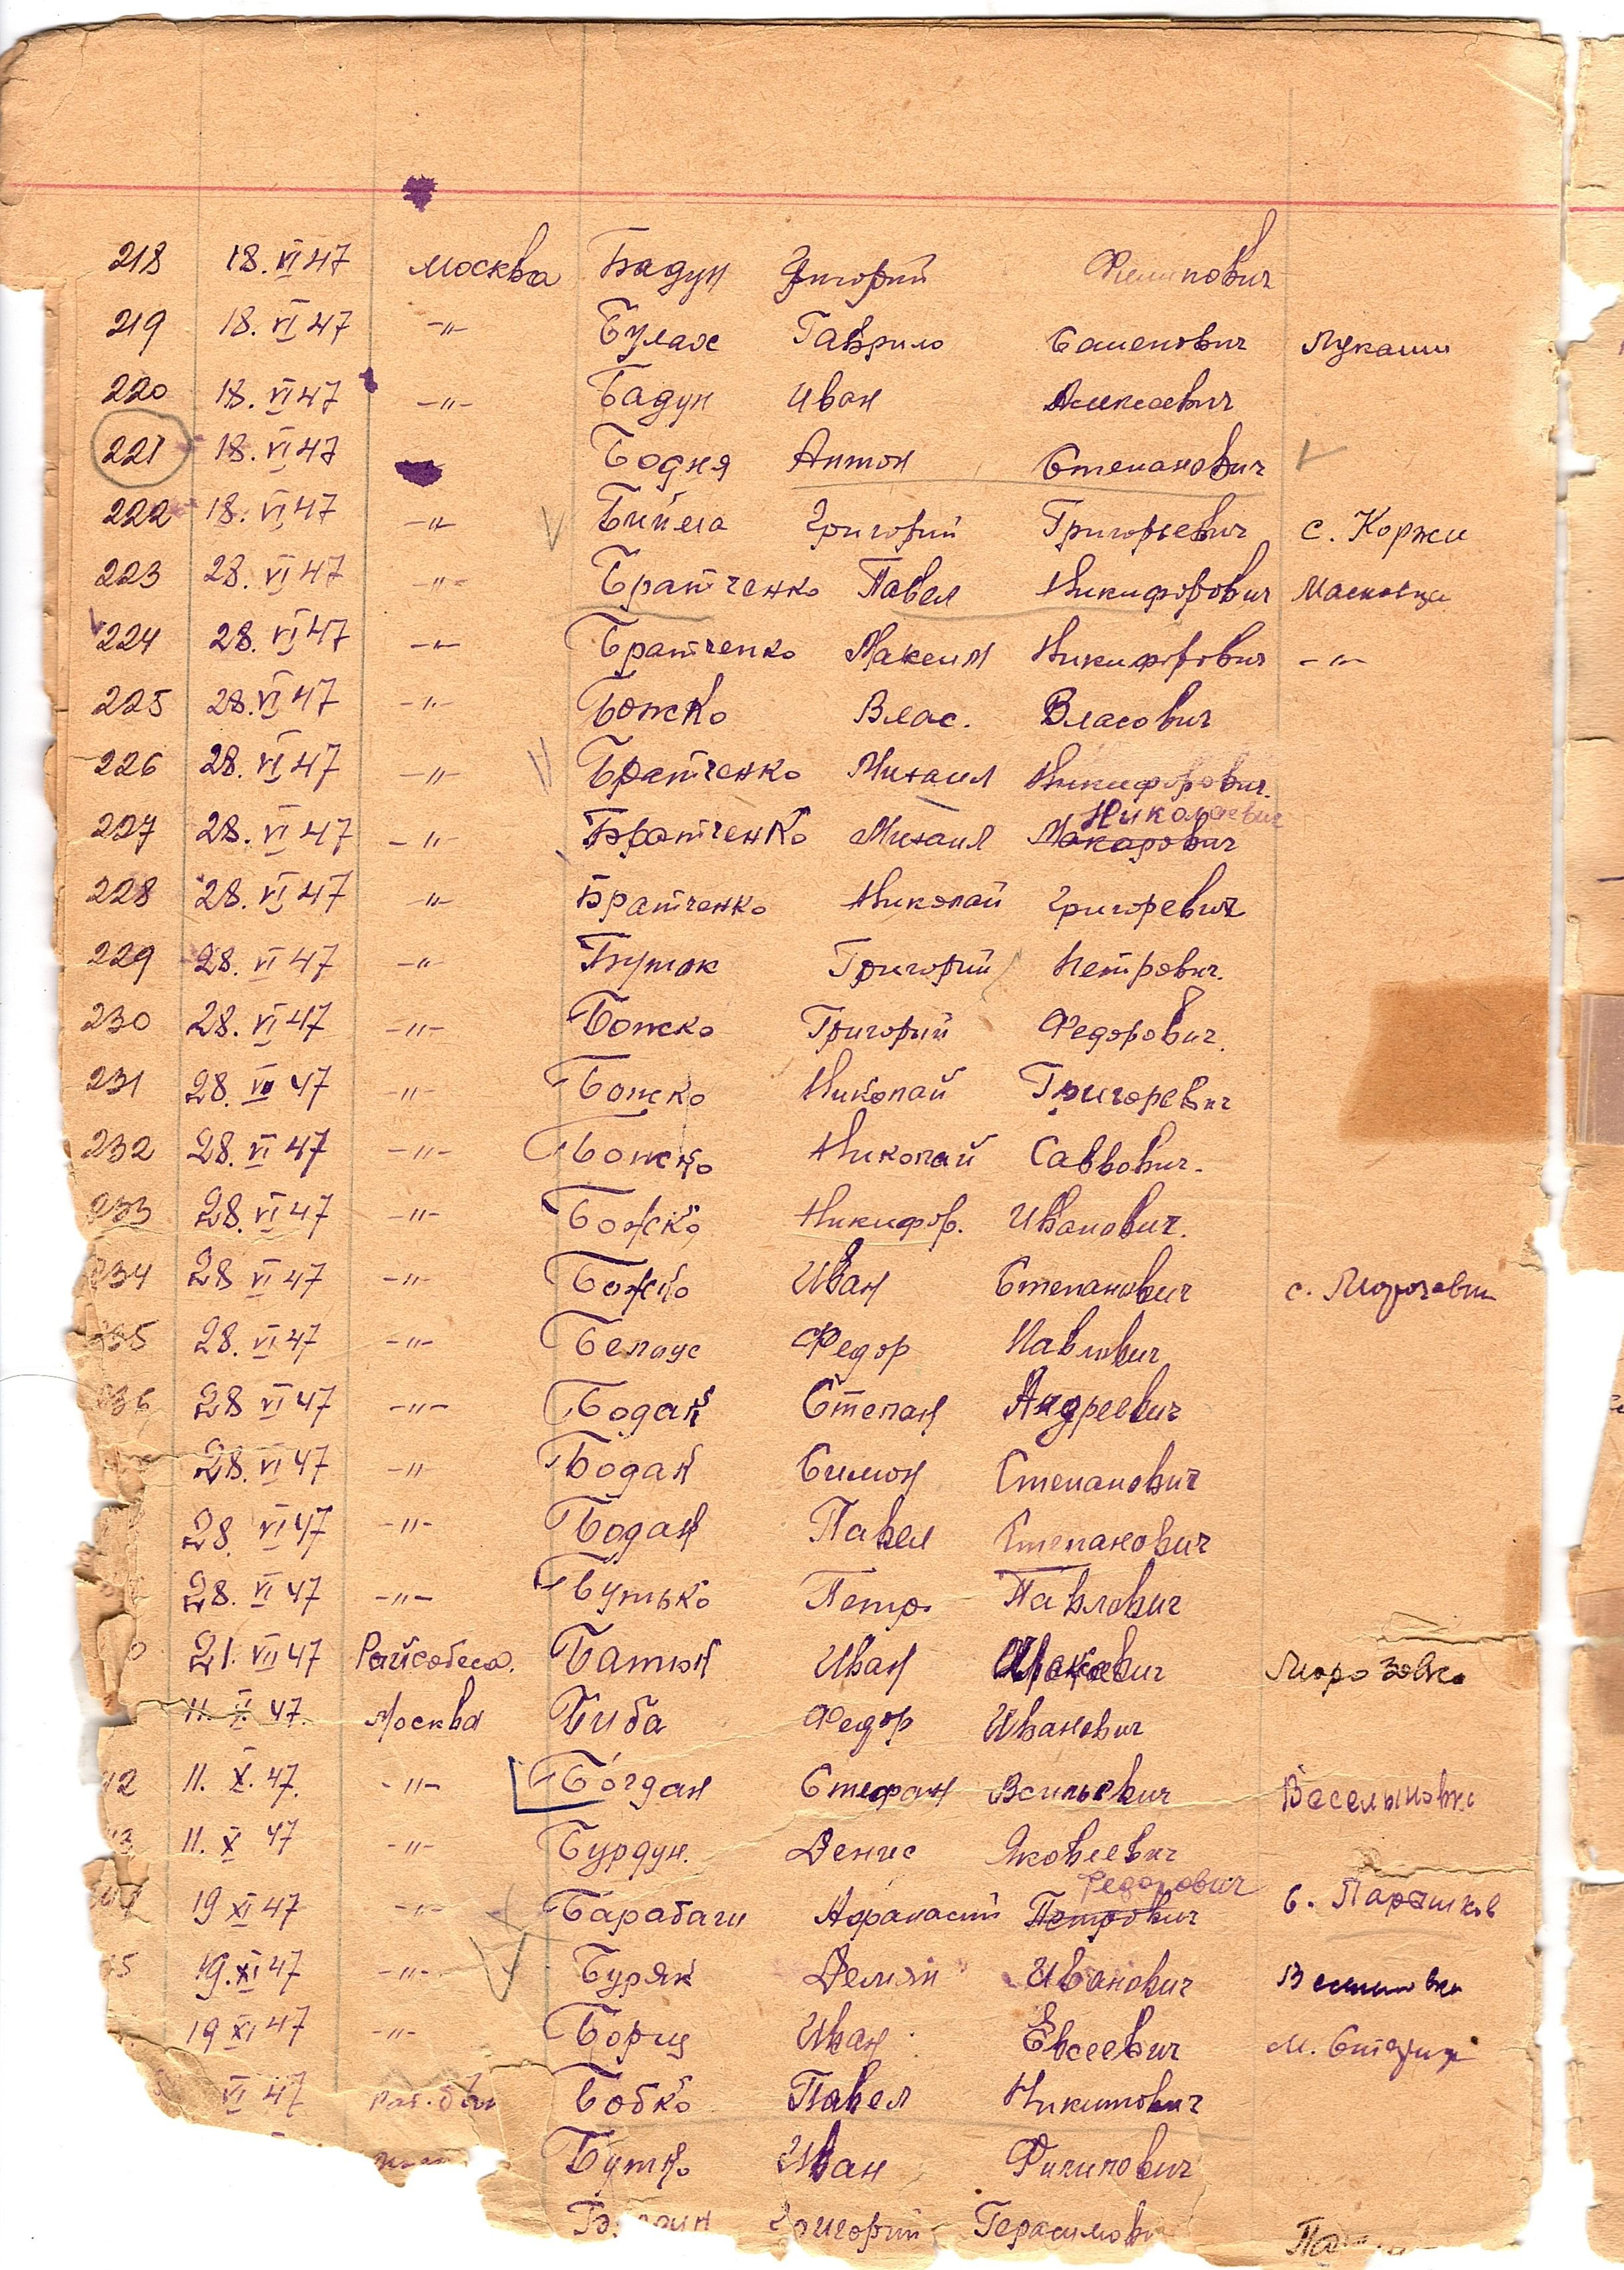 218 18. VI 47 Москва Бадун Григорий Филипович
219 18. VI 47 -"- Булах Гаврило Семенович Лукаши
220 18. VI 47 -"- Бадун Иван Алексеевич
221 18. VI 47 Бодня Антон Степанович
222 18. VI 47 -"- Григорий Григорьевич с. Коржи
223 28. VI 47 -"- Братченко Павел Никифорович
224 28. VI 47 -"- Братченко Максим Никифорович -"-
225 28. VI 47 -"- Божко Влас. Власович
226 28. VI 47 -"- Братченко Михаил Никифорович.
Николаевич
227 28. VI 47 -"- Братченко Михаил Макарович
228 28. VI 47 -"- Братченко Николай Григоревич
229 28. VI 47 -"- Григорий Петрович.
230 28. VI 47 -"- Божко Григорий Федорович.
231 28. 47 -"- Божко Николай Григоревич
232 28. VI 47 -"- Божко Николай Саввович.
233 28. VI 47 -"- Божко Никифор. Иванович.
234 28 VI 47 -"- Божко Иван Степанович с.
35 28. VI 47 -"- Белоус Федор Павлович
36 28 VI 47 -"- Бодан Степан Андреевич
28. VI 47 -"- Бодан Симон Степанович
28. VI 47 -"- Бодан Павел Степанович
28. VI 47 -"- Бутько Петр. Павлович
0 21. VII 47 Райсобеса. Батюк Иван Морозовка
11. X. 47. Москва Биба Федор Иванович
42 11. X. 47. -"- Богдан Стефан Веселыновка
43 11. X 47 -"- Бурдун. Денис Яковлевич
Федорович
19 XI 47 -"- Барабаш Афанасий Петрович с.
45 19. XI 47 -"- Буряк Демян Иванович
19 XI 47 -"- Борщ Иван Евсеевич
VI 47 Бобко Павел Никитович
Бутко Иван Филипович
Григорий Герасимови